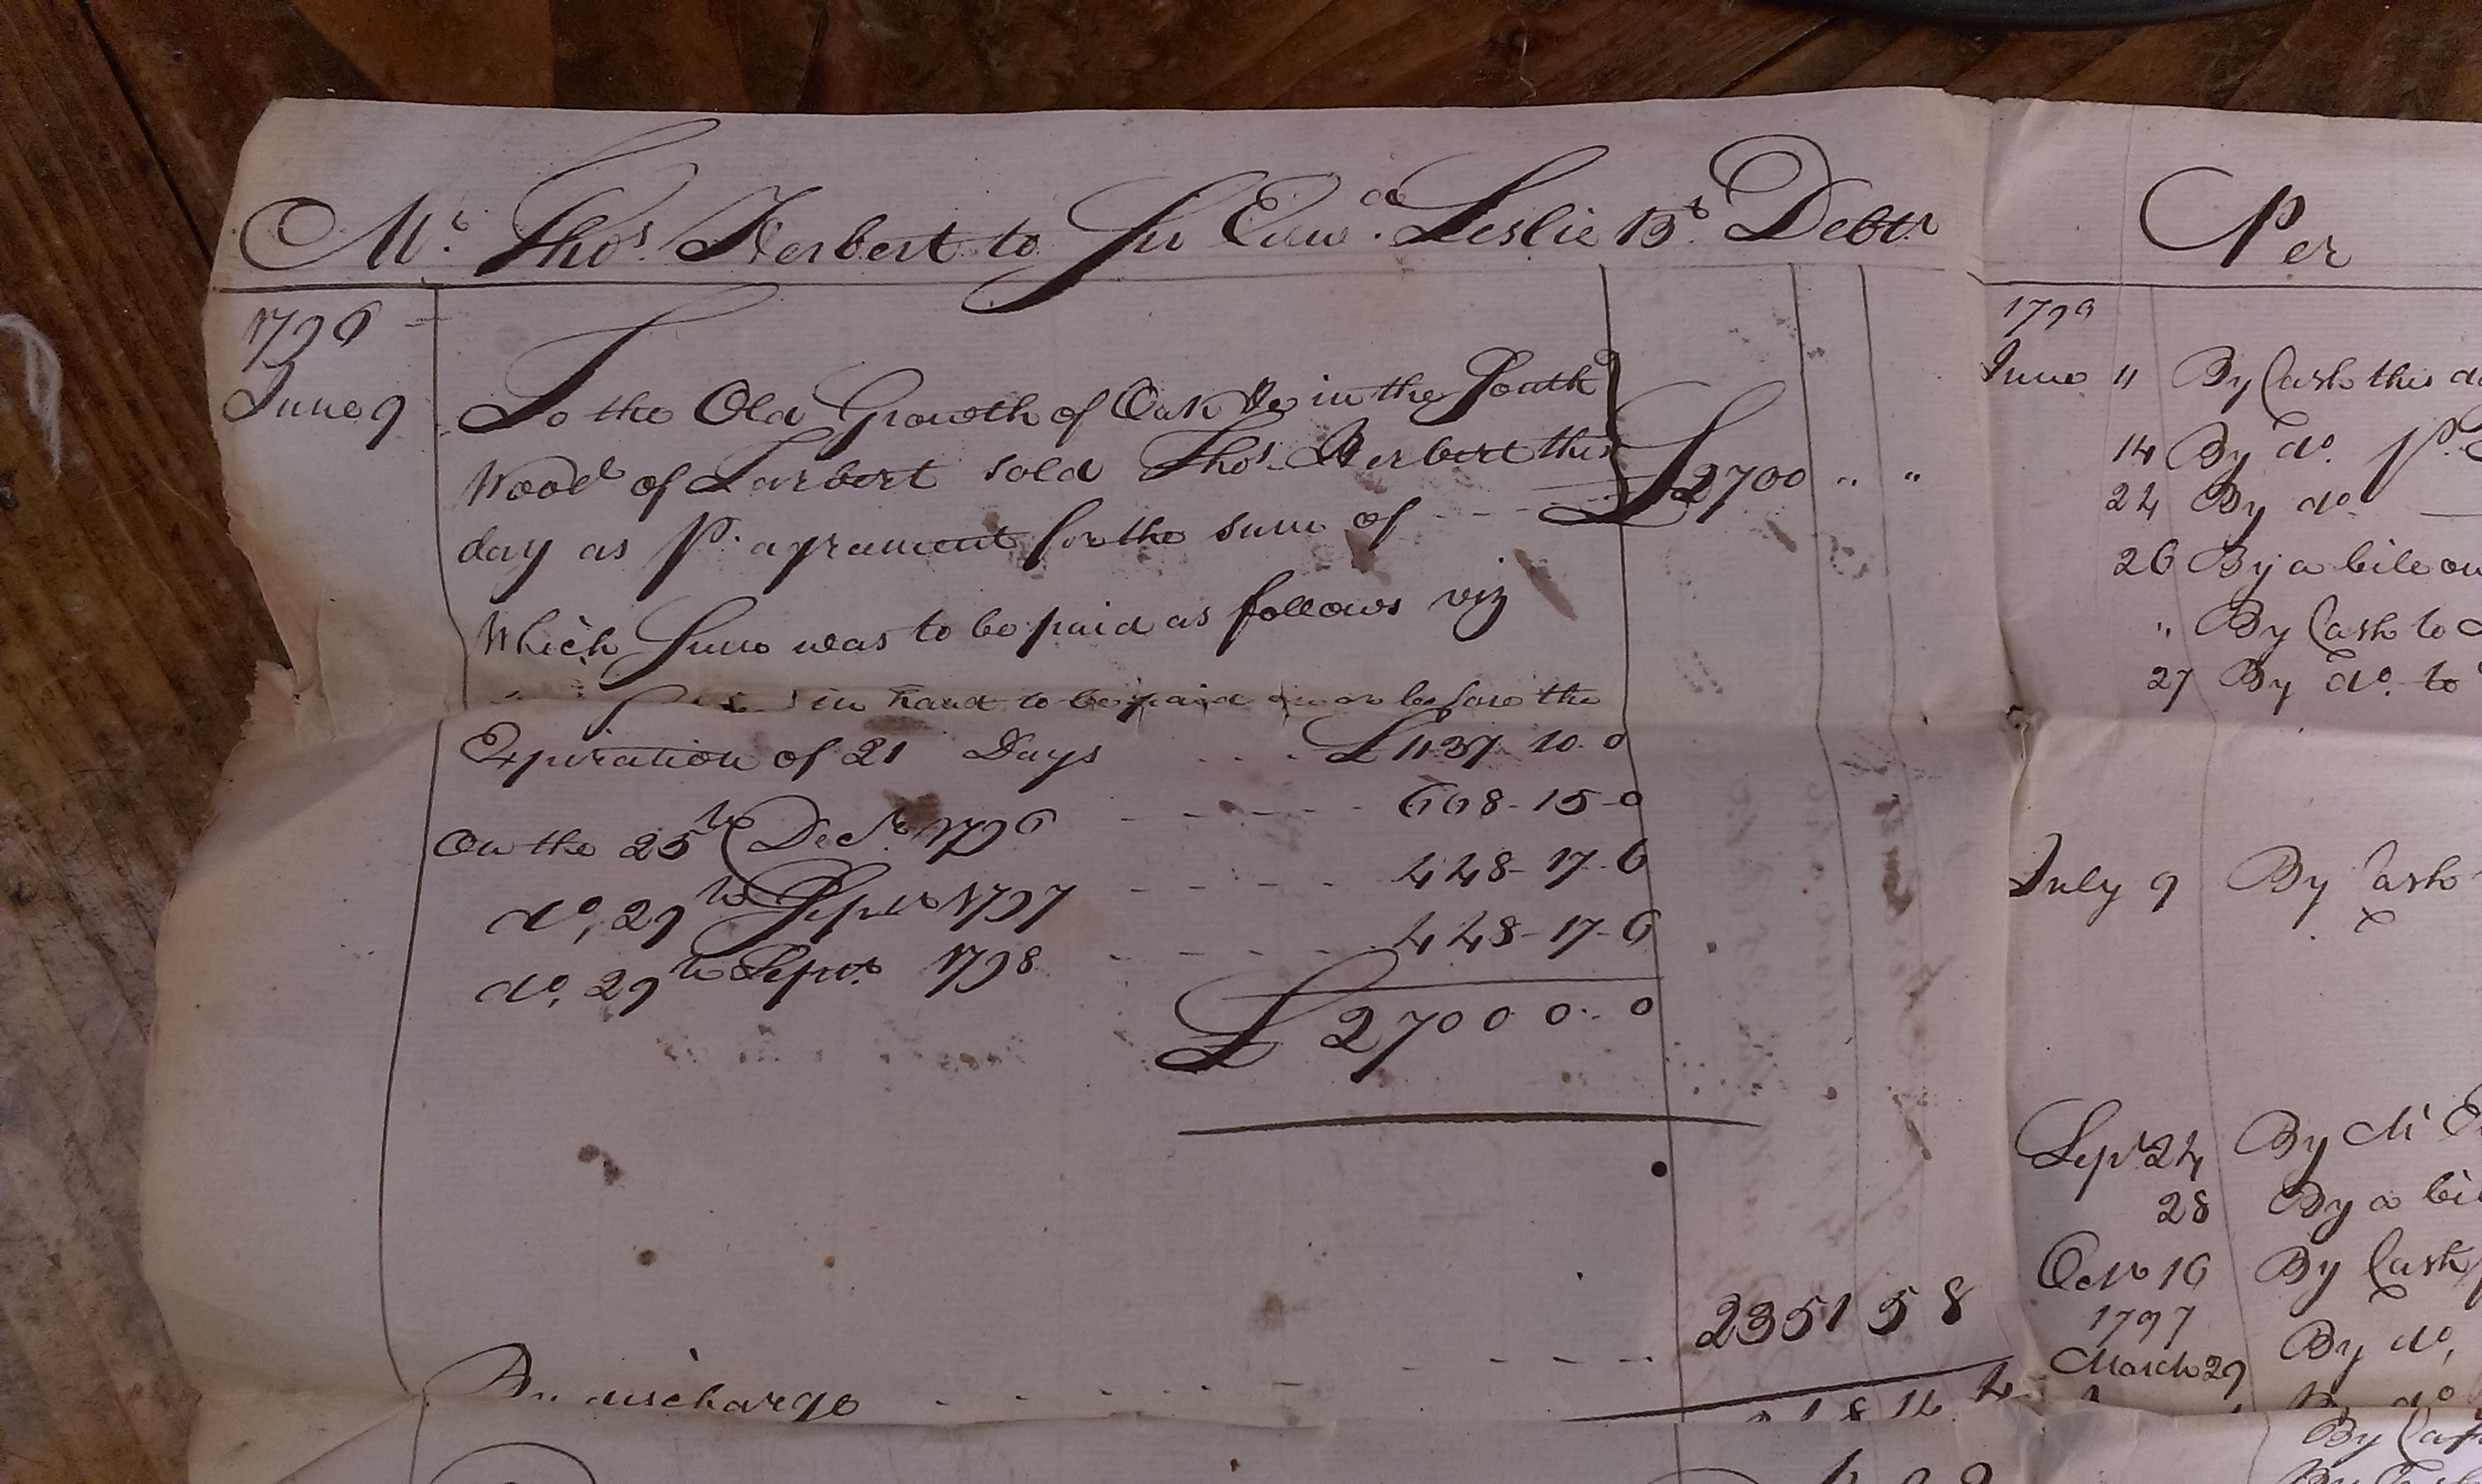 Mr. Thos. Herbert to Sir Edwd. Leslie Bt. Debtr
1796
June 9
To the Old Growth of Oak &c in the South
Wood of Tarbert sold Thos. Herbert this
day as Pr. agreement for the sum of - - - £2700 " "
Which Sum was to be paid as follows viz
in hand to be paid on or before the
Expiration of 21 Days . . . £1137 10. 0
On the 25th Decr. 1796 - - - - - 668-15-0
do, 29th Septr 1797 - - - - - 448-17-6
do, 29th Septr. 1798 - - - - - 448-17-6
£ 2700 0. 0
2351 5 8
discharge
Per
1796
June 11 By Cash this
14 By do. pr.
24 By do
26 By a bill on
" By Cash to
27 By do. to
July 9 By Cash
Sepr 24 By Mr
28 By a
Octr 16 By Cash
1797
March 29 By do,
By do
By